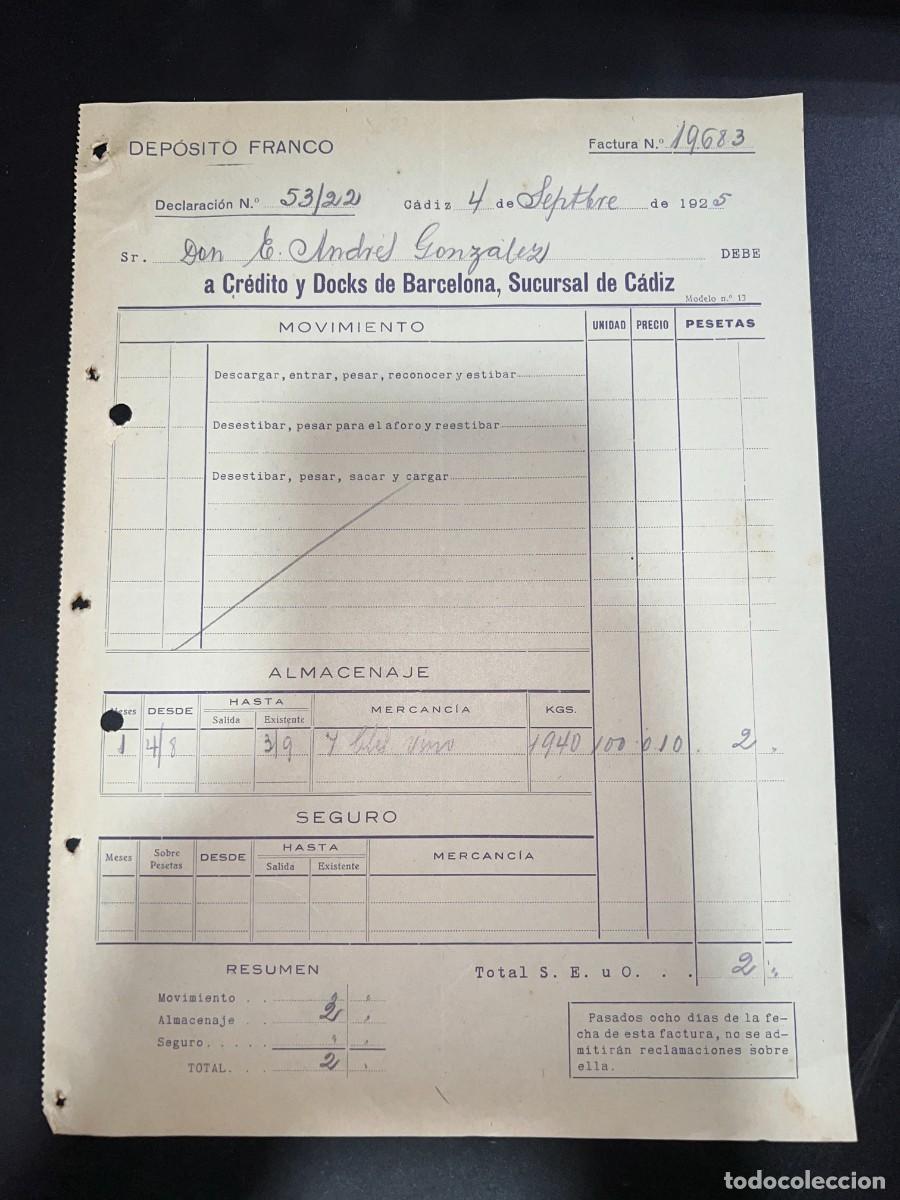 DEPÓSITO FRANCO
Factura N.º 19683
Declaración N.º 53/22 Cádiz 4 de Septbre de 1925
Sr. Don E. Andrés González DEBE
a Crédito y Docks de Barcelona, Sucursal de Cádiz
Modelo n.º 13
MOVIMIENTO UNIDAD PRECIO PESETAS
Descargar, entrar, pesar, reconocer y estibar
Desestibar, pesar para el aforo y reestibar
Desestibar, pesar, sacar y cargar
ALMACENAJE
Meses DESDE HASTA MERCANCÍA KGS.
Salida Existente
1 4/8 3/9 7 vino 1940 100 0 10 2 "
SEGURO
Meses Sobre Pesetas DESDE HASTA MERCANCÍA
Salida Existente
RESUMEN
Total S. E. u O. . . . 2 "
Movimiento . . " "
Almacenaje . . 2 "
Seguro. . . . . " "
TOTAL. . . 2 "
Pasados ocho días de la fe-
cha de esta factura, no se ad-
mitirán reclamaciones sobre
ella.
todocoleccion